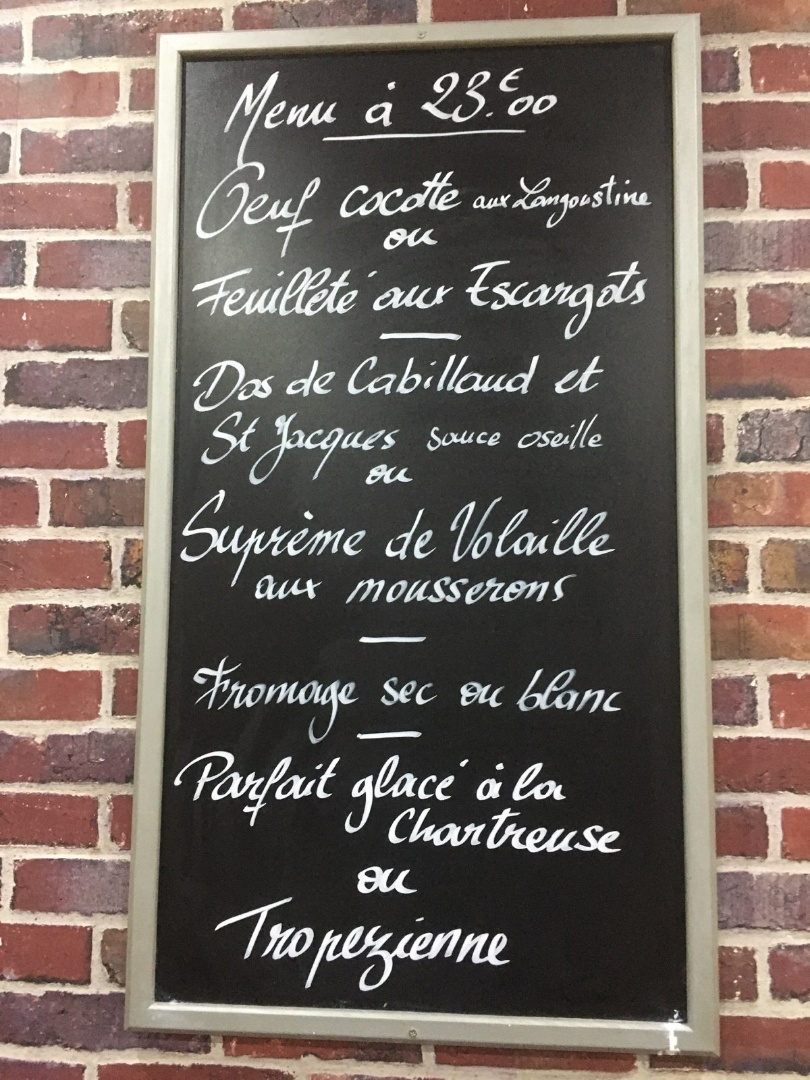 Menu à 23.€00
Oeuf cocotte aux Langoustine
ou
Feuilleté aux Escargots
Dos de Cabillaud et
St Jacques sauce oseille
ou
Suprème de Volaille
aux mousserons
Fromage sec ou blanc
Parfait glacé à la
Chartreuse
ou
Tropezienne